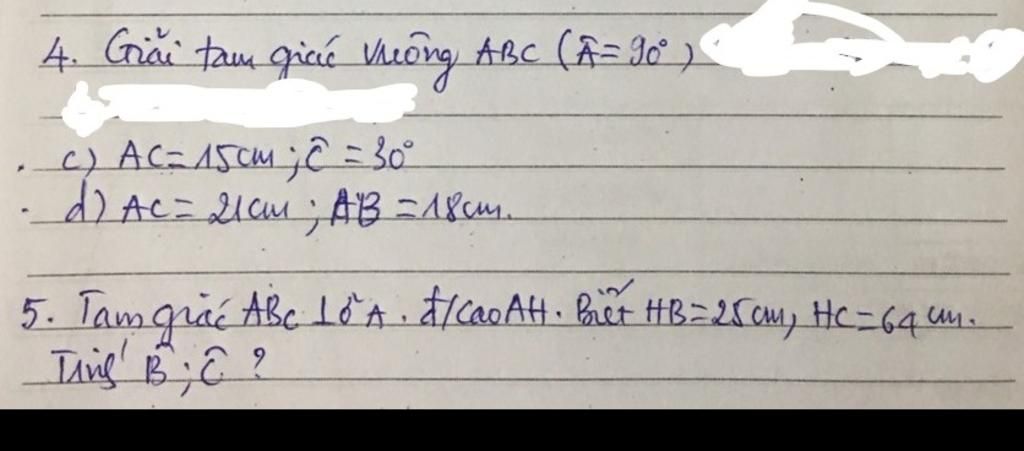 4. Giải tam giác vuông ABC (Â = 90°)
c) AC = 15cm ; Ĉ = 30°
d) AC = 21cm ; AB = 18cm.
5. Tam giác ABC ⊥ ở A. đ/cao AH. Biết HB = 25cm, HC = 64cm.
Tính B̂ ; Ĉ ?